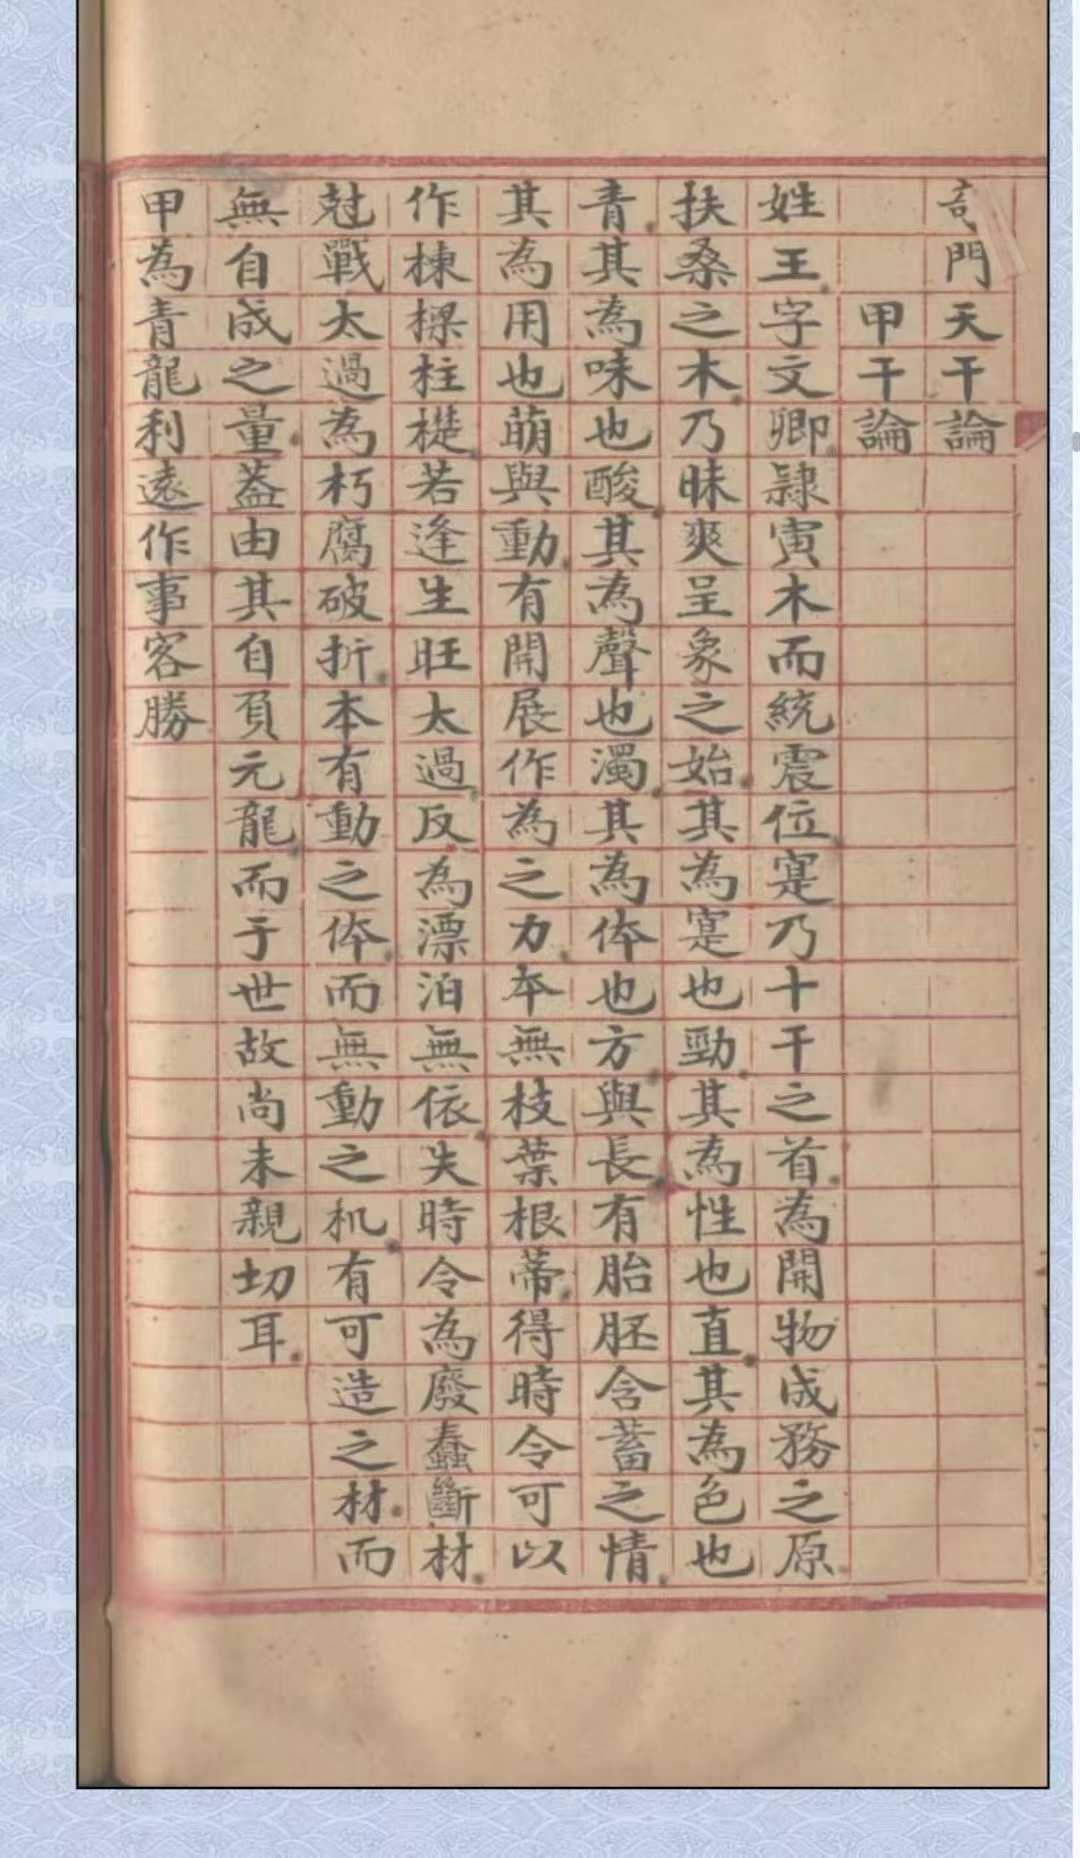 奇門天干論
甲干論
姓王字文卿隸寅木而統震位寔乃十干之首為開物成務之原
扶桑之木乃昧爽呈象之始其為寔也勁其為性也直其為色也
青其為味也酸其為聲也濁其為体也方與長有胎胚含蓄之情
其為用也萌與動有開展作為之力本無枝葉根蒂得時令可以
作棟樑柱櫳若逢生旺太過反為漂泊無依失時令為廢蠢斷材
尅戰太過為朽腐破折本有動之体而無動之机有可造之材而
無自成之量蓋由其自負元龍而于世故尚未親切耳
甲為青龍利遠作事客勝